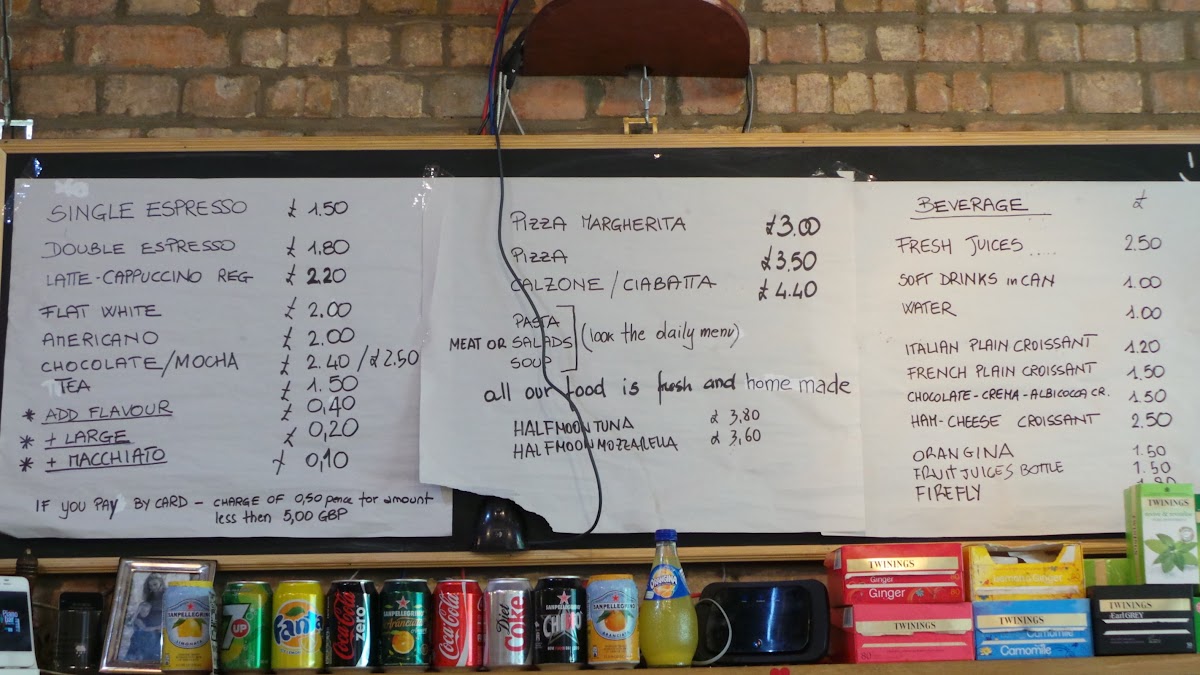 SINGLE ESPRESSO £ 1.50
DOUBLE ESPRESSO £ 1.80
LATTE-CAPPUCCINO REG £ 2.20
FLAT WHITE £ 2,00
AMERICANO £ 2.00
CHOCOLATE/MOCHA £ 2.40 / £ 2.50
TEA £ 1.50
* ADD FLAVOUR £ 0,40
* + LARGE £ 0,20
* + MACCHIATO £ 0,10
IF YOU PAY BY CARD - CHARGE OF 0,50 pence for amount
less then 5,00 GBP
PIZZA MARGHERITA £3.00
PIZZA £3.50
CALZONE / CIABATTA £ 4.40
PASTA
MEAT OR SALADS (look the daily menu)
SOUP
all our food is fresh and home made
HALFMOON TUNA £ 3,80
HALFMOON MOZZARELLA £ 3,60
BEVERAGE £
FRESH JUICES .... 2.50
SOFT DRINKS in CAN 1.00
WATER 1.00
ITALIAN PLAIN CROISSANT 1.20
FRENCH PLAIN CROISSANT 1.50
CHOCOLATE-CREMA-ALBICOCCA CR. 1.50
HAM-CHEESE CROISSANT 2.50
ORANGINA 1.50
FRUIT JUICES BOTTLE 1.50
FIREFLY
SANPELLEGRINO
LIMONATA
7UP
Fanta
Coca-Cola zero
SANPELLEGRINO
Aranciata
Coca-Cola
Diet Coke
SANPELLEGRINO
CHINO
SANPELLEGRINO
ARANCIATA
ORANGINA
TWININGS
Ginger
Ginger
TWININGS
80
Lemon & Ginger
TWININGS
Camomile
Camomile
TWININGS
TWININGS
Earl GREY